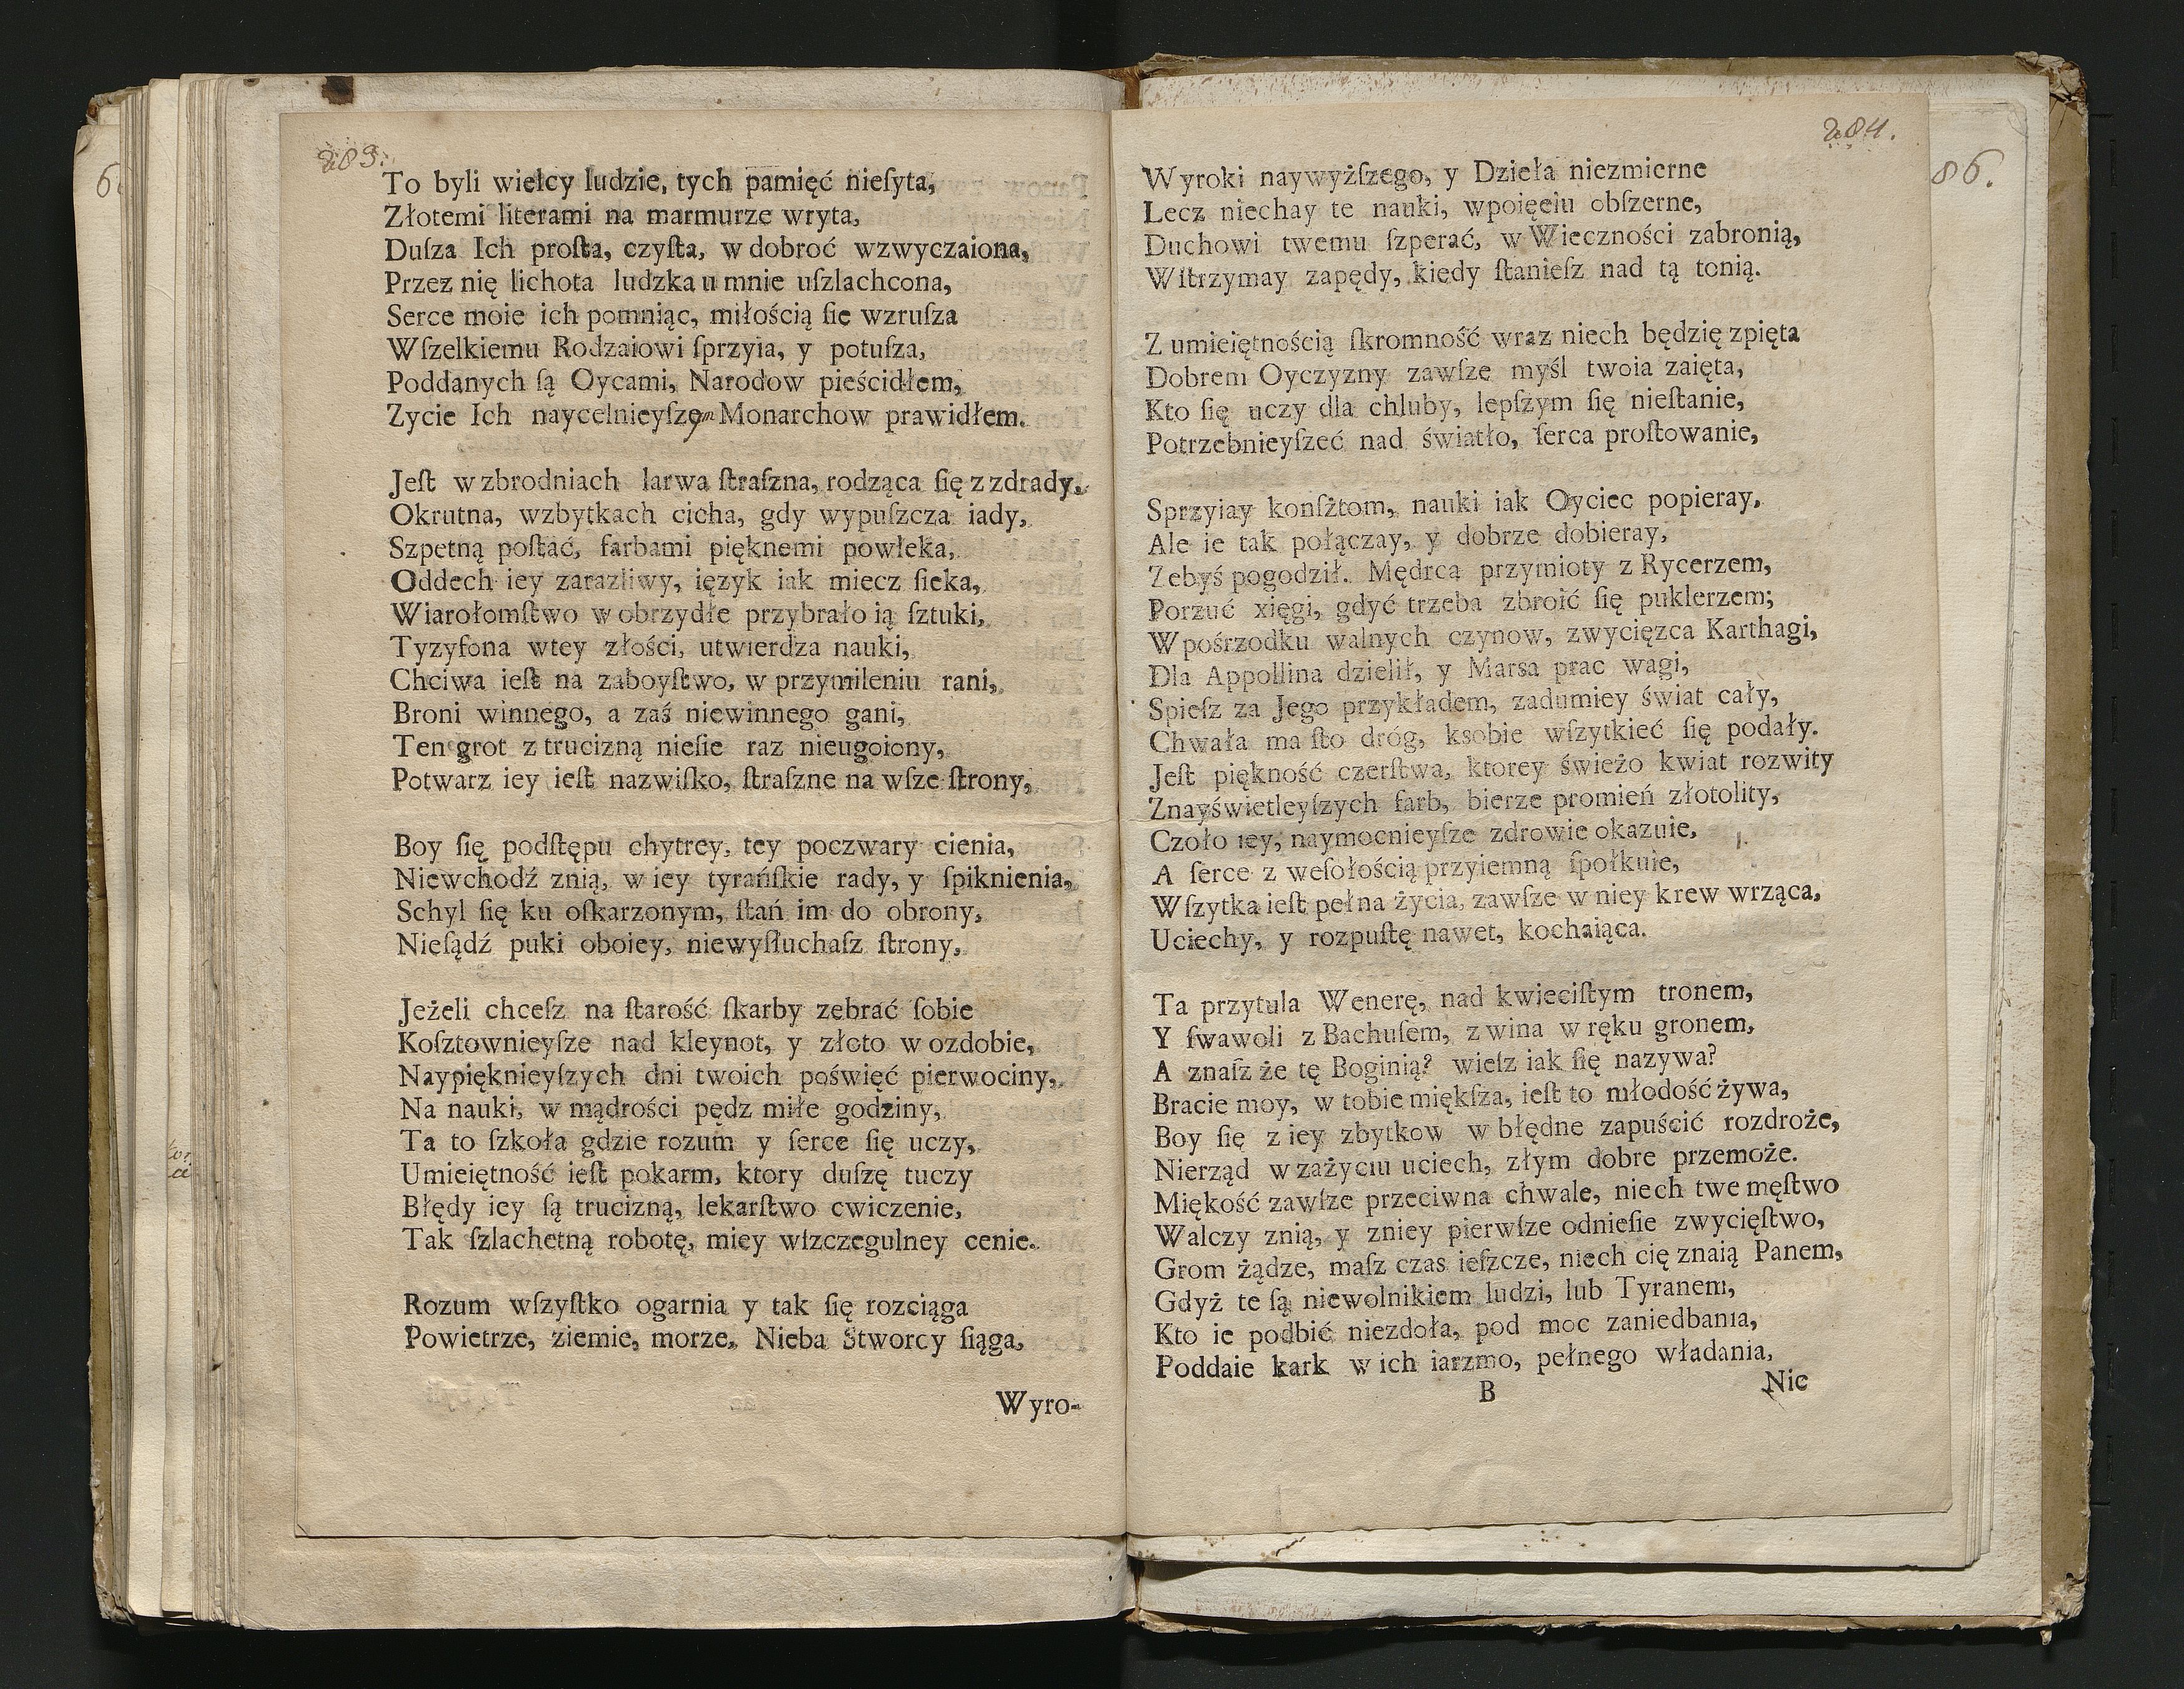 283.
To byli wielcy ludzie, tych pamięć nieſyta,
Złotemi literami na marmurze wryta,
Duſza Ich proſta, czyſta, w dobroć wzwyczaiona,
Przez nię lichota ludzka u mnie uſzlachcona,
Serce moie ich pomniąc, miłością ſie wzruſza
Wſzelkiemu Rodzaiowi ſprzyia, y potuſza,
Poddanych ſą Oycami, Narodow pieścidłem,
Zycie Ich naycelnieyſzym Monarchow prawidłem.
Jeſt w zbrodniach larwa ſtraſzna, rodząca ſię z zdrady,
Okrutna, wzbytkach cicha, gdy wypuſzcza iady,
Szpetną poſtać, farbami pięknemi powleka,
Oddech iey zarazliwy, ięzyk iak miecz ſieka,
Wiarołomſtwo w obrzydłe przybrało ią ſztuki,
Tyzyfona wtey złości, utwierdza nauki,
Chciwa ieſt na zaboyſtwo, w przymileniu rani,
Broni winnego, a zaś niewinnego gani,
Ten grot z trucizną nieſie raz nieugoiony,
Potwarz iey ieſt nazwiſko, ſtraſzne na wſze ſtrony,
Boy ſię podſtępu chytrey, tey poczwary cienia,
Niewchodź znią, w iey tyrańſkie rady, y ſpiknienia,
Schyl ſię ku oſkarzonym, ſtań im do obrony,
Nieſądź puki oboiey, niewyſłuchaſz ſtrony,
Jeżeli chceſz na ſtarość ſkarby zebrać ſobie
Koſztownieyſze nad kleynot, y złoto w ozdobie,
Naypięknieyſzych dni twoich poświęć pierwociny,
Na nauki, w mądrości pędz miłe godziny,
Ta to ſzkoła gdzie rozum y ſerce ſię uczy,
Umieiętność ieſt pokarm, ktory duſzę tuczy
Błędy iey ſą trucizną, lekarſtwo cwiczenie,
Tak ſzlachetną robotę, miey wſzczegulney cenie.
Rozum wſzyſtko ogarnia y tak ſię rozciąga
Powietrze, ziemie, morze, Nieba Stworcy ſiąga,
Wyro-
284.
86.
Wyroki naywyżſzego, y Dzieła niezmierne
Lecz niechay te nauki, wpoięciu obſzerne,
Duchowi twemu ſzperać, w Wieczności zabronią,
Wſtrzymay zapędy, kiedy ſtanieſz nad tą tonią.
Z umieiętnością ſkromność wraz niech będzię zpięta
Dobrem Oyczyzny zawſze myśl twoia zaięta,
Kto ſię uczy dla chluby, lepſzym ſię nieſtanie,
Potrzebnieyſzeć nad światło, ſerca proſtowanie,
Sprzyiay konſżtom, nauki iak Oyciec popieray,
Ale ie tak połączay, y dobrze dobieray,
Zebyś pogodził. Mędrca przymioty z Rycerzem,
Porzuć xięgi, gdyć trzeba zbroić ſię puklerzem;
W pośrzodku walnych czynow, zwycięzca Karthagi,
Dla Appollina dzielił, y Marsa prac wagi,
Spieſz za Jego przykładem, zadumiey świat cały,
Chwała ma ſto dróg, ksobie wſzytkieć ſię podały.
Jeſt piękność czerſtwa, ktorey świeżo kwiat rozwity
Znayświetleyſzych farb, bierze promień złotolity,
Czoło iey, naymocnieyſze zdrowie okazuie,
A ſerce z weſołością przyiemną ſpołkuie,
Wſzytka ieſt pełna życia, zawſze w niey krew wrząca,
Uciechy, y rozpuſtę nawet, kochaiąca.
Ta przytula Wenerę, nad kwieciſtym tronem,
Y ſwawoli z Bachuſem, z wina w ręku gronem,
A znaſz że tę Boginią? wieſz iak ſię nazywa?
Bracie moy, w tobie miękſza, ieſt to młodość żywa,
Boy ſię z iey zbytkow w błędne zapuścić rozdroże,
Nierząd w zażyciu uciech, złym dobre przemoże.
Miękość zawſze przeciwna chwale, niech twe męſtwo
Walczy znią, y zniey pierwſze odnieſie zwycięſtwo,
Grom żądze, maſz czas ieſzcze, niech cię znaią Panem,
Gdyż te ſą niewolnikiem ludzi, lub Tyranem,
Kto ie podbić niezdoła, pod moc zaniedbania,
Poddaie kark w ich iarzmo, pełnego władania,
B
Nic